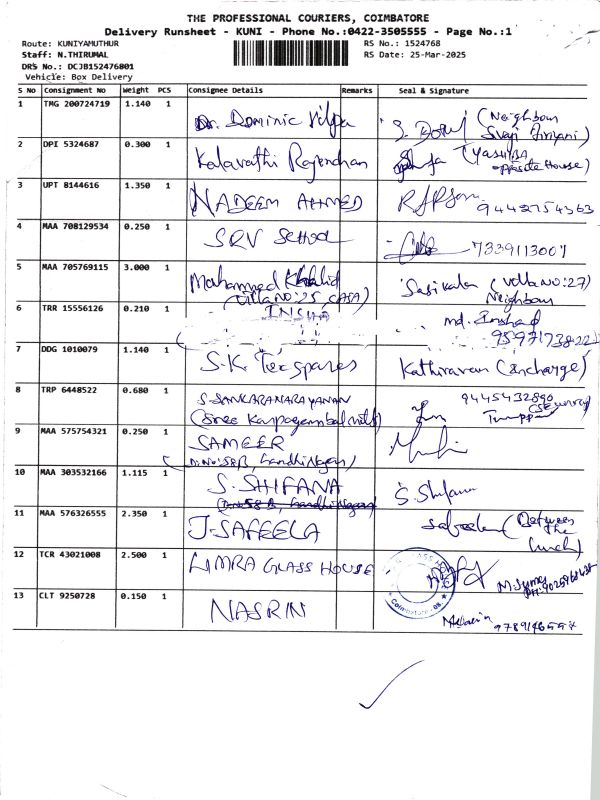 THE PROFESSIONAL COURIERS, COIMBATORE
Delivery Runsheet - KUNI - Phone No.:0422-3505555 - Page No.:1
Route: KUNIYAMUTHUR RS No.: 1524768
Staff: N.THIRUMAL RS Date: 25-Mar-2025
DRS No.: DCJB152476801
Vehicle: Box Delivery
S No Consignment No Weight PCS Consignee Details Remarks Seal & Signature
1 TMG 200724719 1.140 1 Dr. Dominic (Neighbour
2 DPI 5324687 0.300 1 Kalavathi Rajendran opposite House)
3 UPT 8144616 1.350 1 NADEEM AHMED 9442754363
4 MAA 708129534 0.250 1 SRV School 7339113007
5 MAA 705769115 3.000 1 Mohammed Khalid Sasikala (Villa NO:27)
(Villa NO:25, CASA) Neighbour
6 TRR 15556126 0.210 1 INSHA md. Inshad
7 DDG 1010079 1.140 1 S.K. Tex spares Kathiravan (Incharge)
8 TRP 6448522 0.680 1 S-SANKARANARAYANAN 9445432890
(Sree Karpagambal mills)
9 MAA 575754321 0.250 1 SAMEER
(D.No:58B, Gandhi Nagar)
10 MAA 303532166 1.115 1 S. SHIFANA S. Shifana
11 MAA 576326555 2.350 1 J-SAFEELA (Between
the
12 TCR 43021008 2.500 1 LIMRA GLASS HOUSE
Coimbatore
13 CLT 9250728 0.150 1 NASRIN